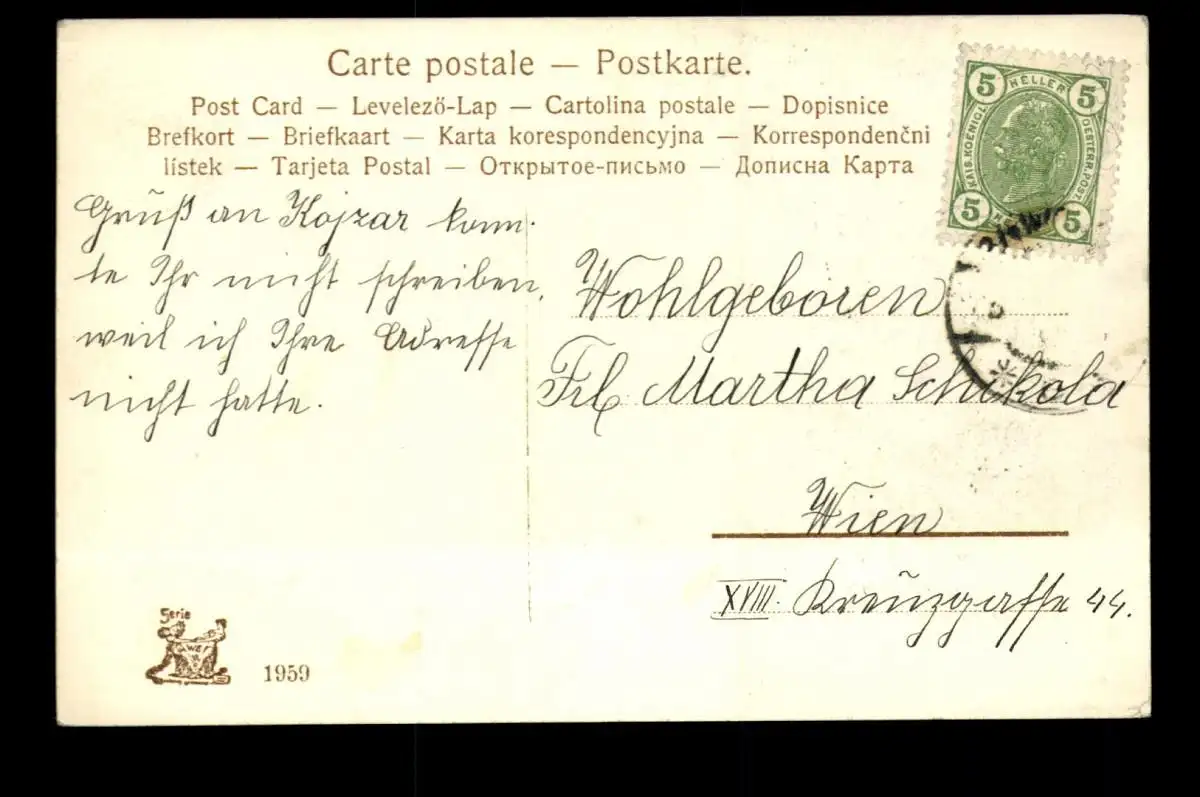 Carte postale — Postkarte.
Post Card — Levelező-Lap — Cartolina postale — Dopisnice
Brefkort — Briefkaart — Karta korespondencyjna — Korrespondenční
lístek — Tarjeta Postal — Открытое-письмо — Дописна Карта
5 HELLER 5
KAIS. KOENIGL. OESTERR. POST.
5 5
Grüß an Kojzar konn-
te Ihr nicht schreiben,
weil ich Ihre Adresse
nicht hatte.
Wohlgeboren
Frl Martha Schikola
Wien
XVIII. Kreuzgasse 44.
Serie
1959